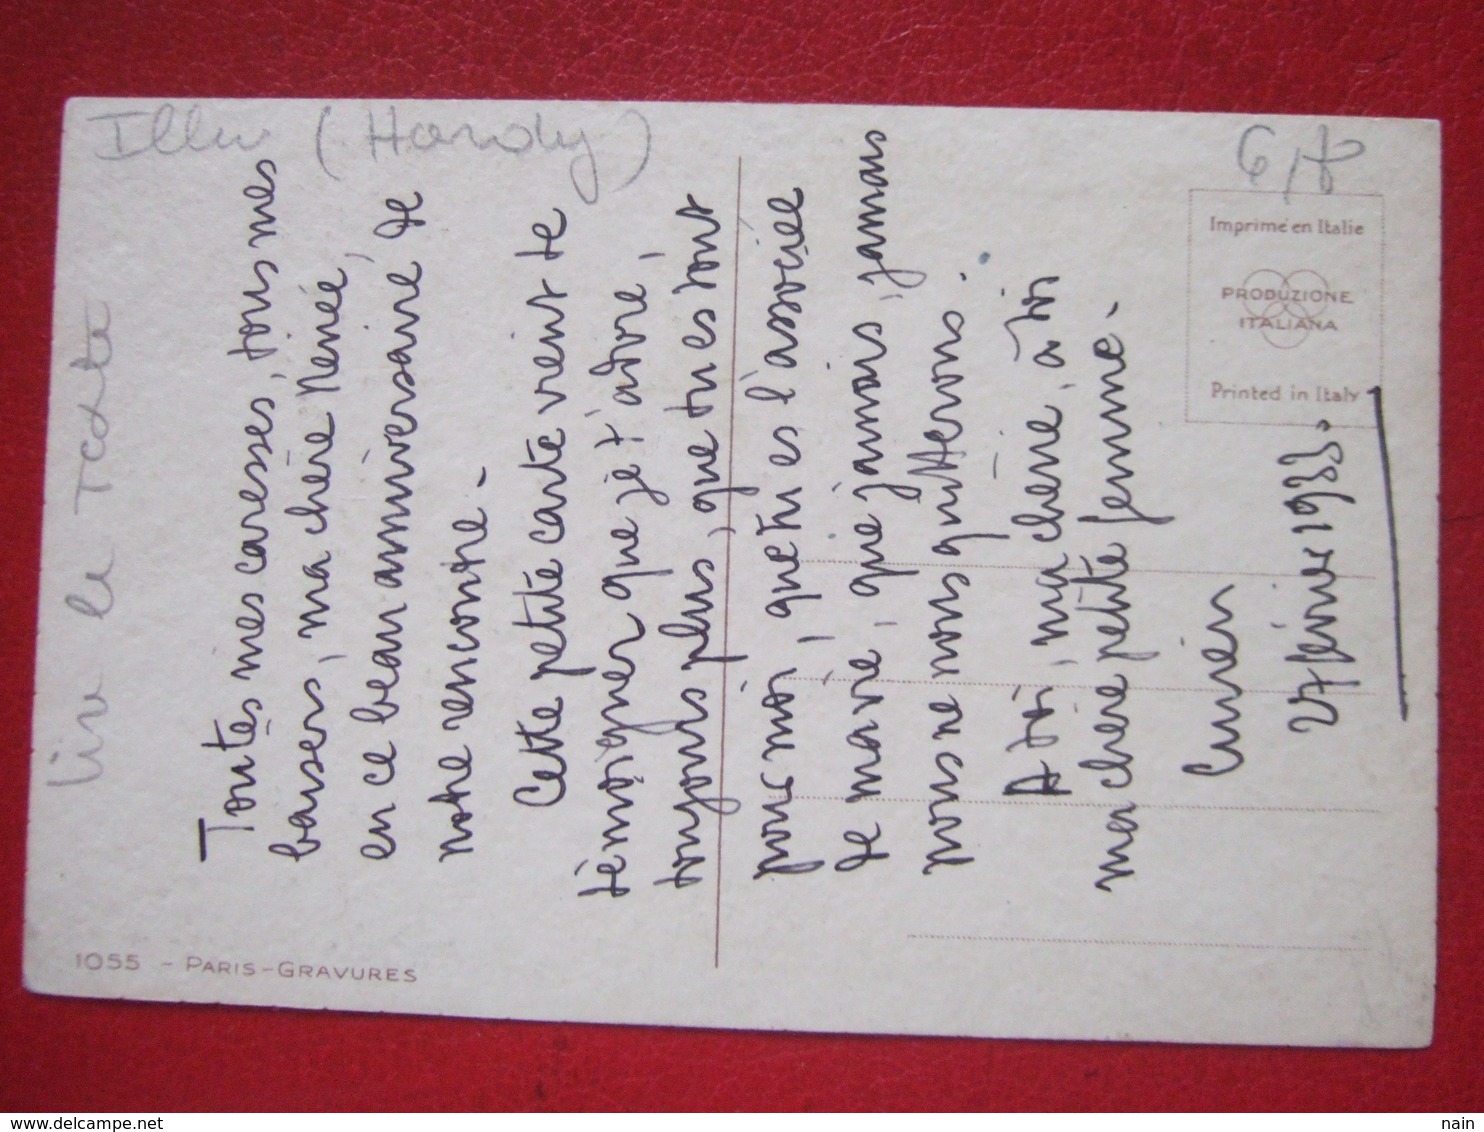 Illu (Hardy)
Lire le Texte
6,
Toutes mes caresses, tous mes
baisers, ma chère Renée,
en ce beau anniversaire de
notre rencontre.
Cette petite carte vient te
témoigner que je t'adore,
toujours plus, que tu es tout
pour moi, que tu es l'associée
de ma vie, que jamais, jamais
nous ne nous quitterons.
A toi, ma chérie, à toi
ma chère petite femme.
Février 1933.
Imprimé en Italie
PRODUZIONE
ITALIANA
Printed in Italy
1055 - PARIS-GRAVURES
www.delcampe.net
nain